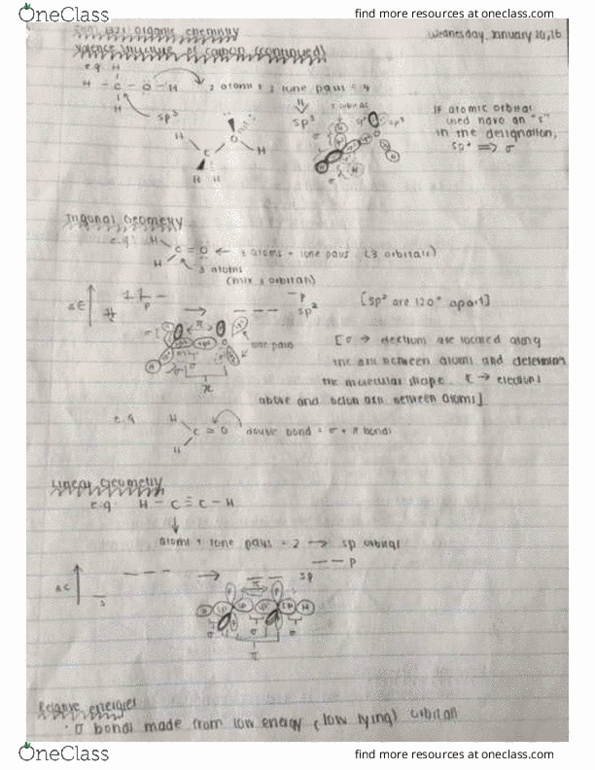 OneClass
find more resources at oneclass.com
1321 Organic chemistry
Wednesday, January 20, 16
Valence structure of carbon (continued)
e.g. H
H - C - Ö - H
2 atoms + 2 lone pairs = 4
H
sp³
sp³
If atomic orbital
used have an "s"
in the designation,
⟹ σ
H
O
C
H
H H
Trigonal Geometry
e.g. H
C = O ← atoms + lone pairs (3 orbitals)
H
3 atoms
(mix 3 orbitals)
ΔE
P
→
P
sp²
[sp² are 120° apart]
lone pairs
π
[σ → electrons are located along
the axis between atoms and determine
the molecular shape. π → electrons
above and below axis between atoms]
e.g. H
C = O double bond = σ + π bonds
H
Linear Geometry
e.g. H - C ≡ C - H
↓
atoms + lone pairs = 2 → sp orbital
ΔE
s
→
P
sp
π
σ
π
Relative energies
· σ bonds made from low energy (low lying) orbital
OneClass
find more resources at oneclass.com